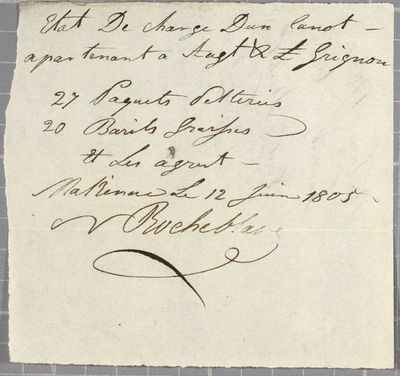 Etat De charge Dun Canot -
apartenant a Augt & L Grignon
27 Paquets Pelteries
20 Barils Graisses
Et Les agrest -
Makinac Le 12 Juin 1805
Rocheblave